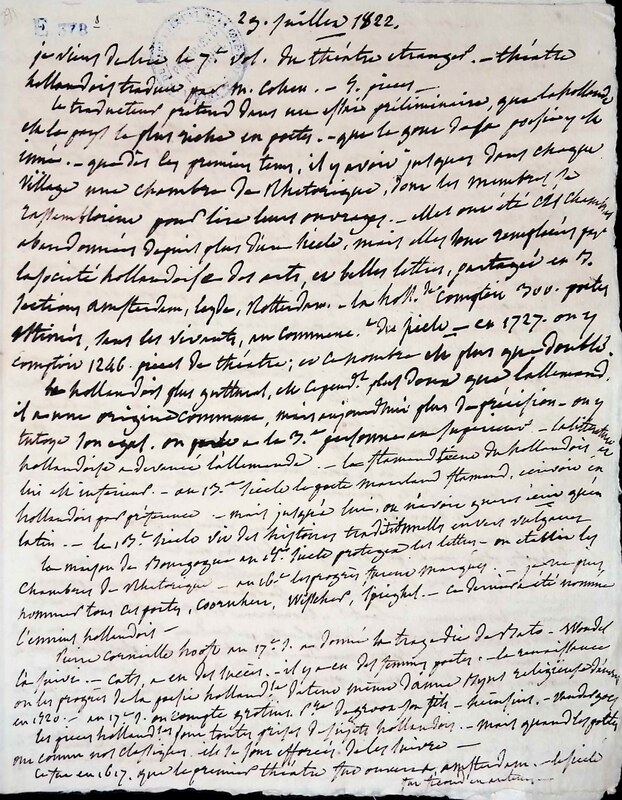 E 378 8
29. juillet 1822.
je viens de lire le 7.e vol. du théâtre etranger. – théâtre
hollandois traduit par M. Cohen. – 5. pieces –
le traducteur pretend dans une essai préliminaire, que la hollande
est le pays le plus riche en poetes. – que le gout de la poesie y est
inné. – que dès les premiers tems, il y avoit jusques dans chaque
village une chambre de Rhetorique, dont les membres se
rassembloient pour lire leurs ouvrages. – elles ont été ces chambres
abandonnées depuis plus d'un siecle, mais elles sont remplacées par
la societé hollandoise des arts, et belles lettres, partagée en 3.
sections amsterdam, leyde, Rotterdam. – la holl.de comptoit 300. poetes
estimés, sans les vivants, au commenc.t du siecle – en 1727. on y
comptoit 1246. pieces de théatre; et ce nombre est plus que doublé.
le hollandois plus guttural, est cepend.t plus doux que l'allemand.
il a une origine commune, mais aujourd'hui plus de précision – on y
tutoye son egal. on parle a la 3.e personne au superieur – la litterature
hollandoise a devancé l'allemande. – le flamand du hollandois, et
lui est inferieur. – au 13.e siecle le poete maerland flamand, ecrivoit en
hollandois par préference – mais jusqu'à lui, on n'ecrivoit gueres qu'en
latin. – le 13.e siecle vit des histoires traditionnelles en vers vulgaires
la maison de Bourgogne au siecle protegea les lettres – on etablit les
chambres de rhetorique – au 16.e les progrès furent marqués. – je ne puis
nommer tous ces poetes, Coornhert, Wisscher, Spieghel. – ce dernier a été nommé
l'ennius hollandois –
Pierre Corneille hooft au 17.e s. a donné la tragedie de Bato – Vondel
l'a suivi – Cats, a eu des succès. – il y a eu des femmes poetes. – la renaissance
ou les progrès de la poesie holland.se datent même d'une
en 1720. – au 17.e s. on compte grotius. de groot son fils – heinsius. –
les pieces holland.ses sont toutes prises de sujets hollandois. – mais quand les poetes
ont connu nos classiques. ils se sont efforcés de les suivre –
ce fut en 1617. que le premier théâtre fut ouvert a amsterdam. – le siecle
fut fecond en auteurs. –